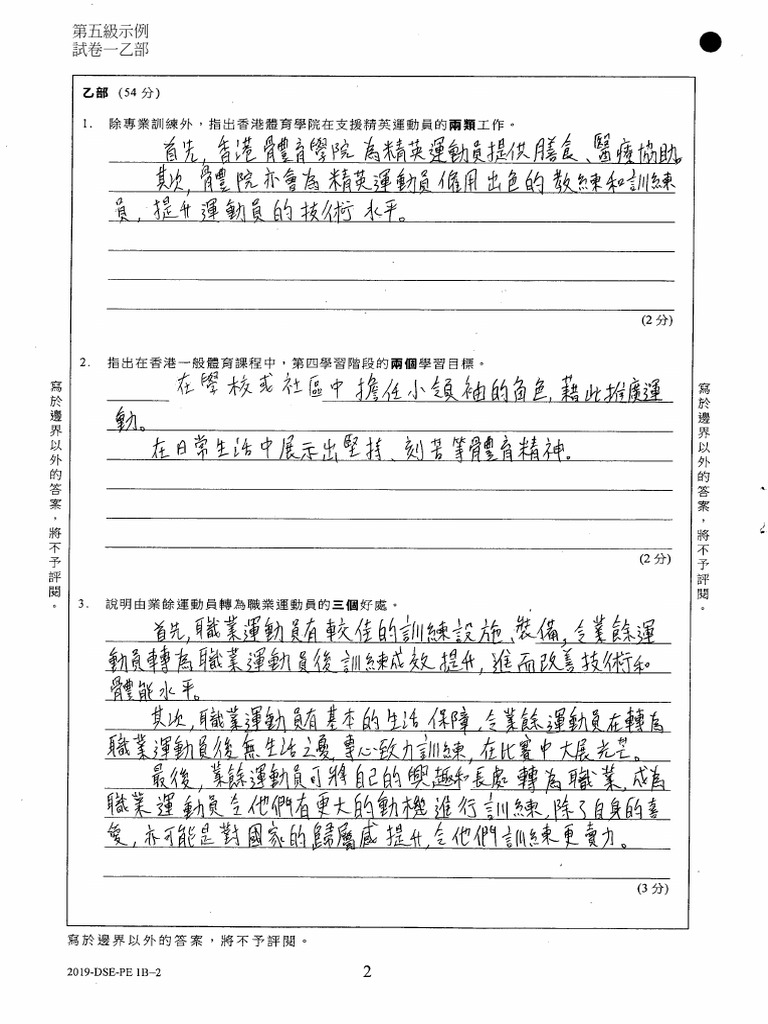 第五級示例
試卷一乙部
乙部 (54 分)
1. 除專業訓練外，指出香港體育學院在支援精英運動員的兩類工作。
首先，香港體育學院為精英運動員提供膳食、醫療協助。
其次，體院亦會為精英運動員僱用出色的教練和訓練
員，提升運動員的技術水平。
(2 分)
2. 指出在香港一般體育課程中，第四學習階段的兩個學習目標。
在學校或社區中擔任小領袖的角色，藉此推廣運
動。
在日常生活中展示出堅持、刻苦等體育精神。
(2 分)
3. 說明由業餘運動員轉為職業運動員的三個好處。
首先，職業運動員有較佳的訓練設施、裝備，令業餘運
動員轉為職業運動員後訓練成效提升，進而改善技術和
體能水平。
其次，職業運動員有基本的生活保障，令業餘運動員在轉為
職業運動員後無生活之憂，專心致力訓練，在比賽中大展光芒。
最後，業餘運動員可將自己的興趣和長處轉為職業，成為
職業運動員令他們有更大的動機進行訓練，除了自身的喜
愛，亦可能是對國家的歸屬感提升，令他們訓練更賣力。
(3 分)
寫於邊界以外的答案，將不予評閱。
寫於邊界以外的答案，將不予評閱。
寫於邊界以外的答案，將不予評閱。
2019-DSE-PE 1B–2
2